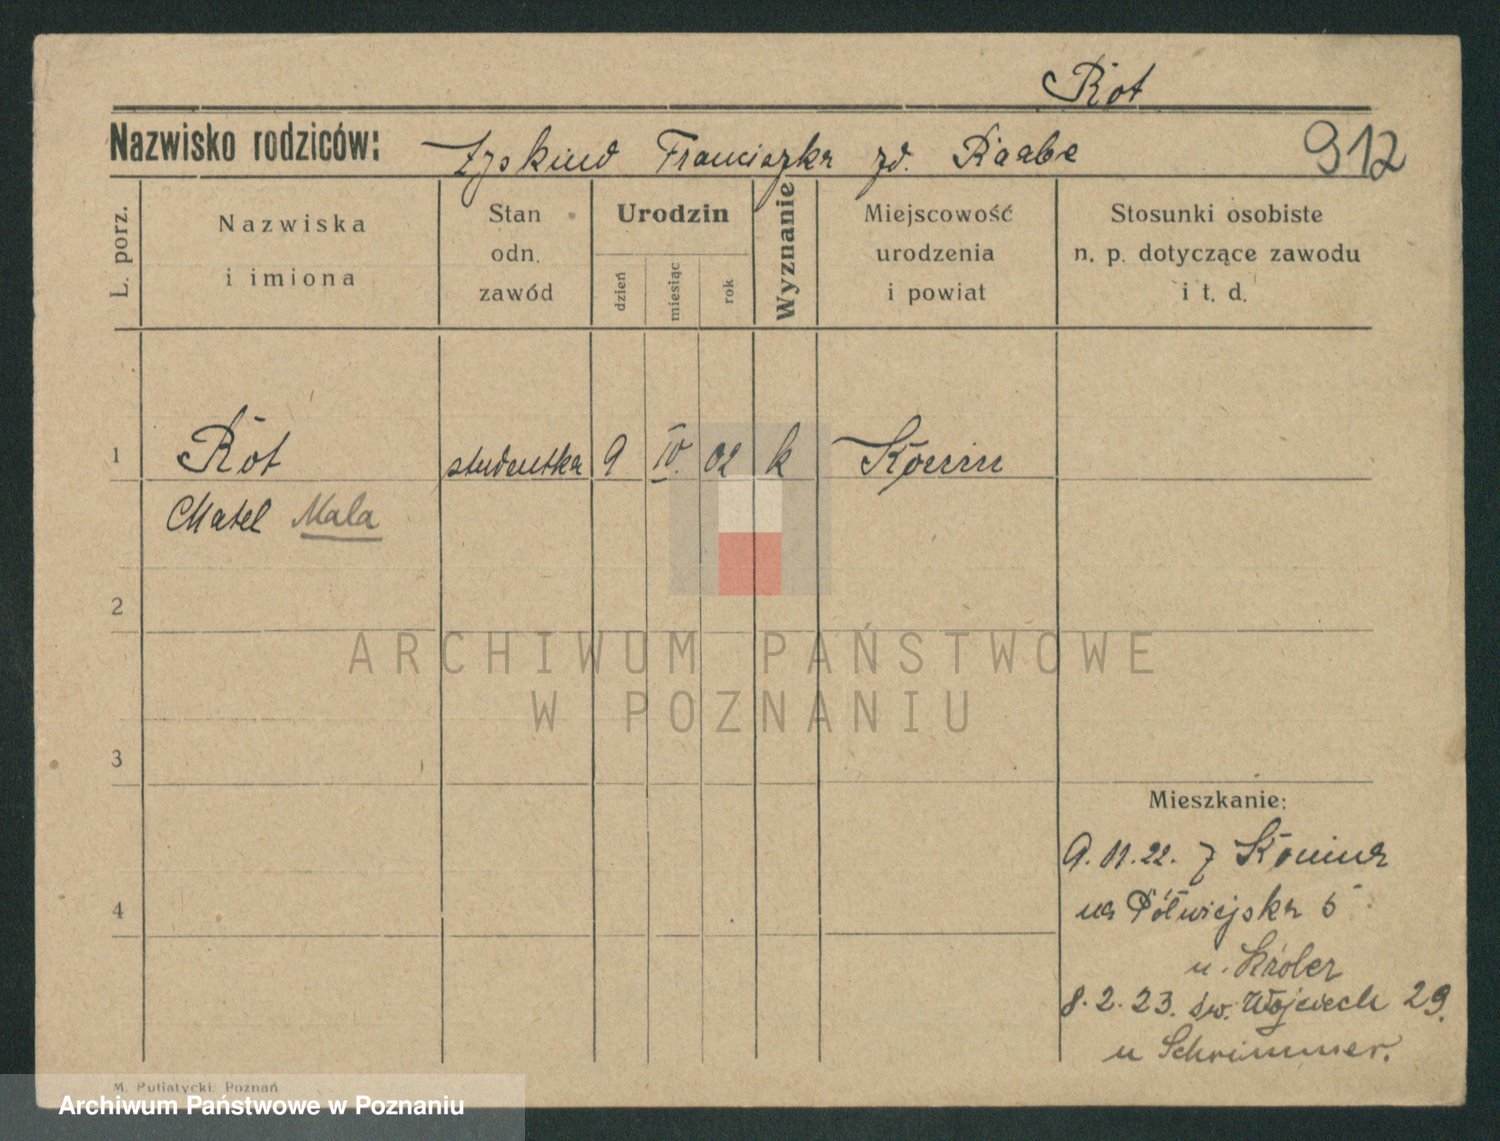 Rot
Nazwisko rodziców: Zyskind Franciszka zd. Raabe 912
L. porz.
Nazwiska
i imiona
Stan
odn.
zawód
Urodzin
dzień
miesiąc
rok
Wyznanie
Miejscowość
urodzenia
i powiat
Stosunki osobiste
n. p. dotyczące zawodu
i t. d.
1 Rot studentka 9 IV. 02 k Konin
Matel Mala
2
ARCHIWUM PAŃSTWOWE
W POZNANIU
3
Mieszkanie:
9.11.22. z Konina
4 na Półwiejska 5
u. Króler
8.2.23. św. Wojciech 29.
u Schrimmer.
M. Putiatycki, Poznań
Archiwum Państwowe w Poznaniu